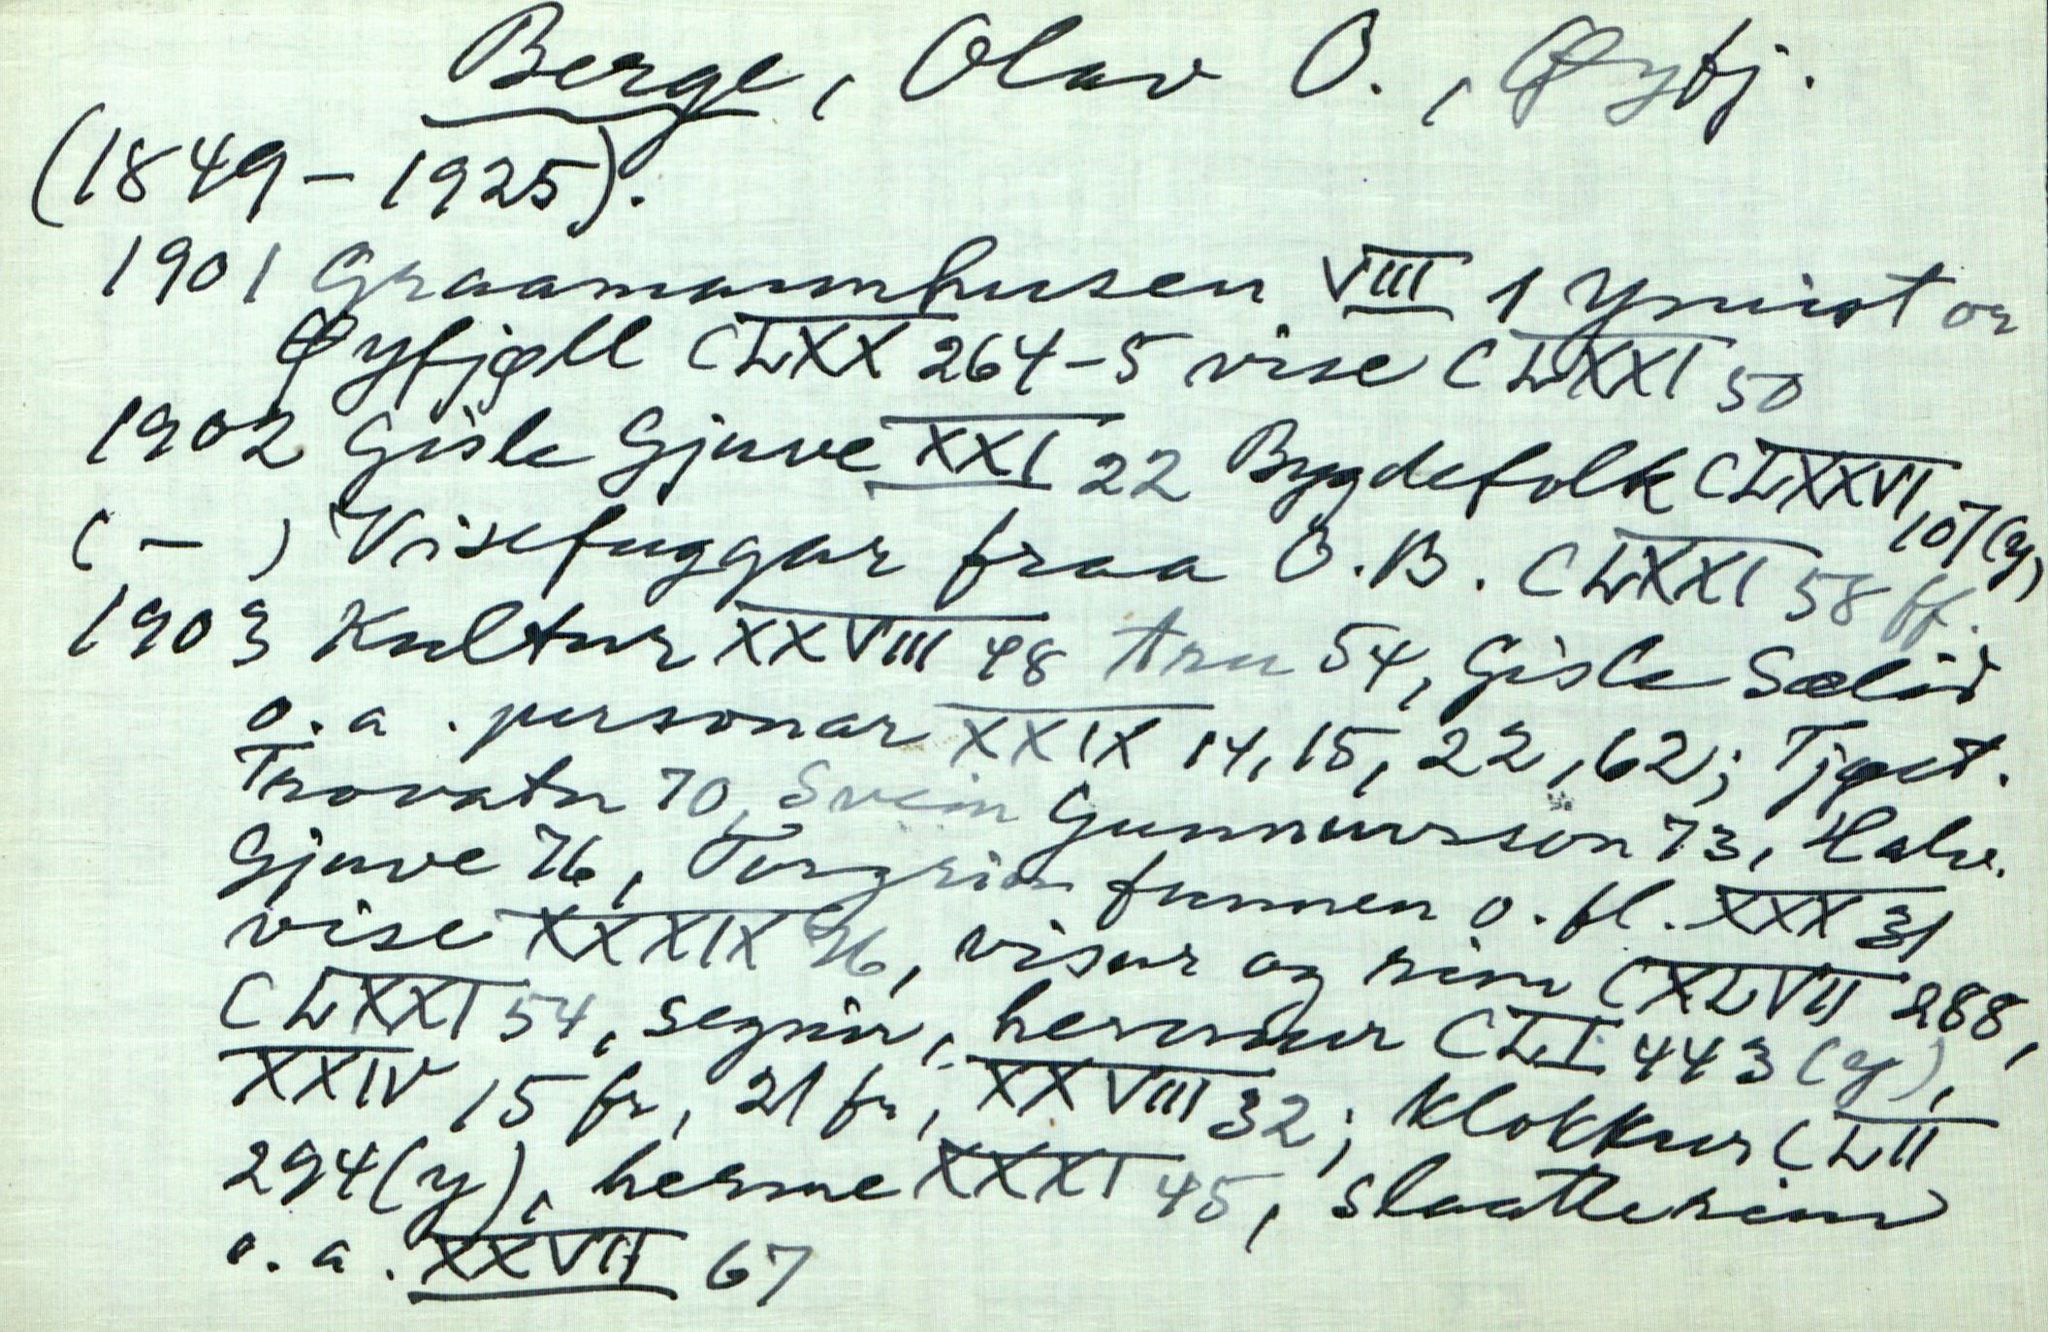 Berge, Olav O., Øyfj.
(1849-1925).
1901 Graamannhusen VIII 1 Ymist or
Øyfjøll CLXX 264-5 vise CLXXI 50
1902 Gisle Gjuve XXI 22 Bygdefolk CLXXVI 107(y)
( - ) Visefuggar fraa O.B. CLXXI 58 ff.
1903 Kultur XXVIII 48 tru 54, Gisle Sælid
o.a. personar XXIX 14, 15, 22, 62; Tjøst.
Trovatn 70, Svein Gunnuvsson 73, Halv.
Gjuve 76, Torgrim funnen o.fl. XXX 31
vise XXXIX 76, visur og rim CXLVII 288,
CLXXI 54, segnir, hermur CLI 443 (y),
XXIV 15 fr, 21 fr, XXVIII 32; Klokkur CLII
294(y), herme XXXI 45, slaatterim
o.a. XXVII 67